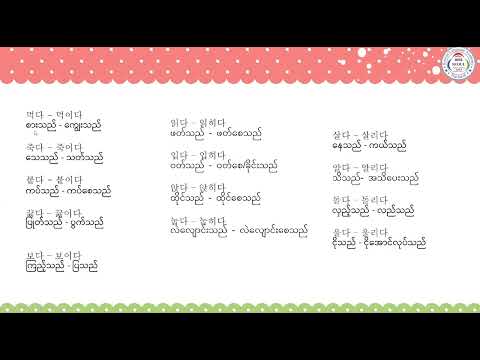 먹다 – 먹이다
စားသည် - ကျွေးသည်
죽다 – 죽이다
သေသည် - သတ်သည်
붙다 – 붙이다
ကပ်သည် - ကပ်စေသည်
끓다 – 끓이다
ပြုတ်သည် - ပွက်သည်
보다 – 보이다
ကြည့်သည် - ပြသည်
읽다 – 읽히다
ဖတ်သည် - ဖတ်စေသည်
입다 – 입히다
ဝတ်သည် - ဝတ်စေ/ခိုင်းသည်
앉다 – 앉히다
ထိုင်သည် - ထိုင်စေသည်
눕다 – 눕히다
လဲလျောင်းသည် - လဲလျောင်းစေသည်
살다 – 살리다
နေသည် - ကယ်သည်
알다 – 알리다
သိသည်- အသိပေးသည်
돌다 – 돌리다
လှည့်သည် - လှည်သည်
울다 – 울리다
ငိုသည် - ငိုအောင်လုပ်သည်
SEOUL